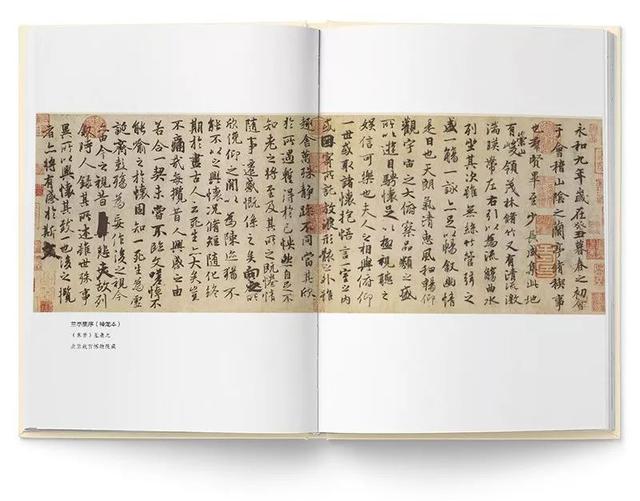 永和九年歲在癸丑暮春之初會
于會稽山陰之蘭亭脩稧事
也羣賢畢至少長咸集此地
有崇山峻領茂林脩竹又有清流激
湍暎帶左右引以為流觴曲水
列坐其次雖無絲竹管弦之
盛一觴一詠亦足以暢叙幽情
是日也天朗氣清惠風和暢仰
觀宇宙之大俯察品類之盛
所以遊目騁懷足以極視聽之
娛信可樂也夫人之相與俯仰
一世或取諸懷抱悟言一室之內
或因寄所託放浪形骸之外雖
趣舍萬殊靜躁不同當其欣
於所遇暫得於己怏然自足不
知老之將至及其所之既惓情
隨事遷感慨係之矣向之所
欣俛仰之閒以為陳迹猶不
能不以之興懷況脩短隨化終
期於盡古人云死生亦大矣豈
不痛哉每攬昔人興感之由
若合一契未嘗不臨文嗟悼不
能喻之於懷固知一死生為虛
誕齊彭殤為妄作後之視今
亦由今之視昔悲夫故列
敘時人錄其所述雖世殊事
異所以興懷其致一也後之攬
者亦將有感於斯文
兰亭集序（神龙本）
（东晋）王羲之
北京故宫博物院藏